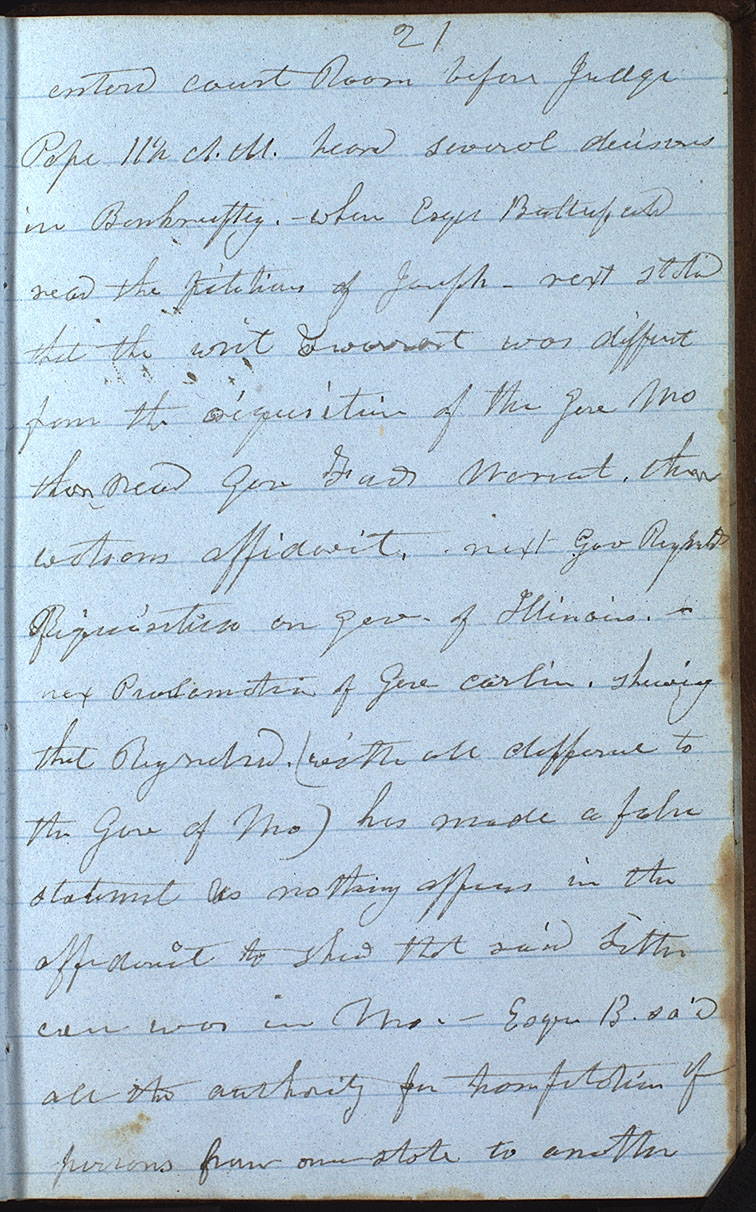 21
enterd court Room before Judge
Pope 11½ A.M. heard several decisions
in Bankruptcy. - when Esqr Butterfield
read the petition of Joseph - next stated
that the writ & warrant was different
from the requisition of the Gove Mo
then read Gov Fords Warrant. then
watsons affidavit. next Gov Reynolds
Requisition on gov. of Illinois. -
next Proclamation of Gove carlin. shewing
that Reynolds. (with all difference to
the Gove of Mo) has made a false
statement as nothing appears in the
affidavit to shew that said Smith
ever was in Mo. - Esqr B. said
all the authority for transportation of
persons from one state to another